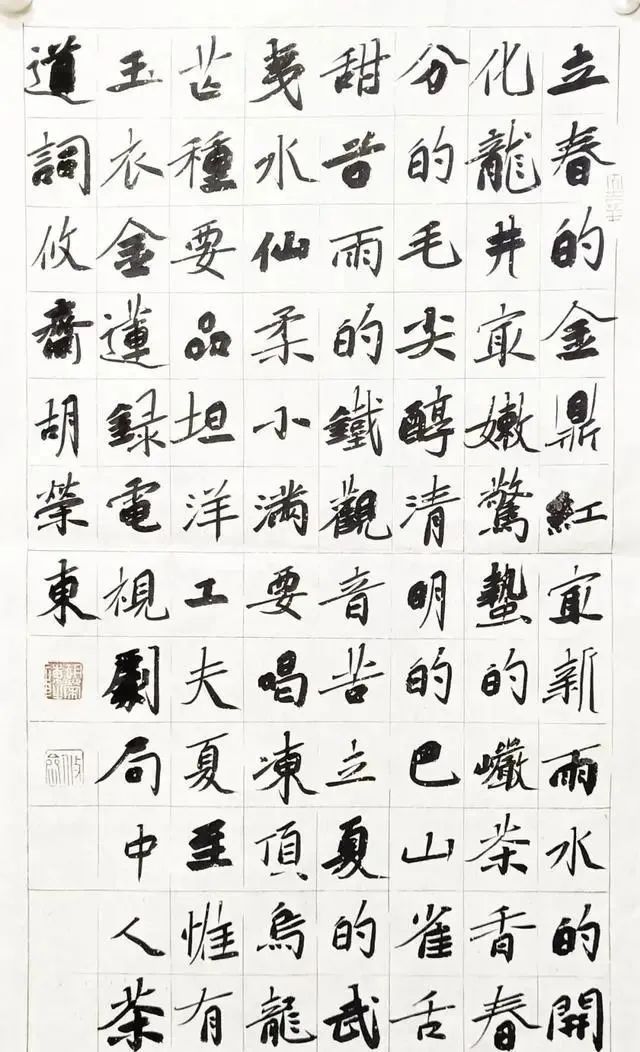 立春的金鼎紅冣新雨水的開
化龍井冣嫩驚蟄的巘茶香春
分的毛尖醇清明的巴山雀舌
甜谷雨的鐵觀音苦立夏的武
夷水仙柔小滿要喝凍頂烏龍
芒種要品坦洋工夫夏至惟有
玉衣金蓮録電視劇局中人茶
道詞攸齋胡榮東